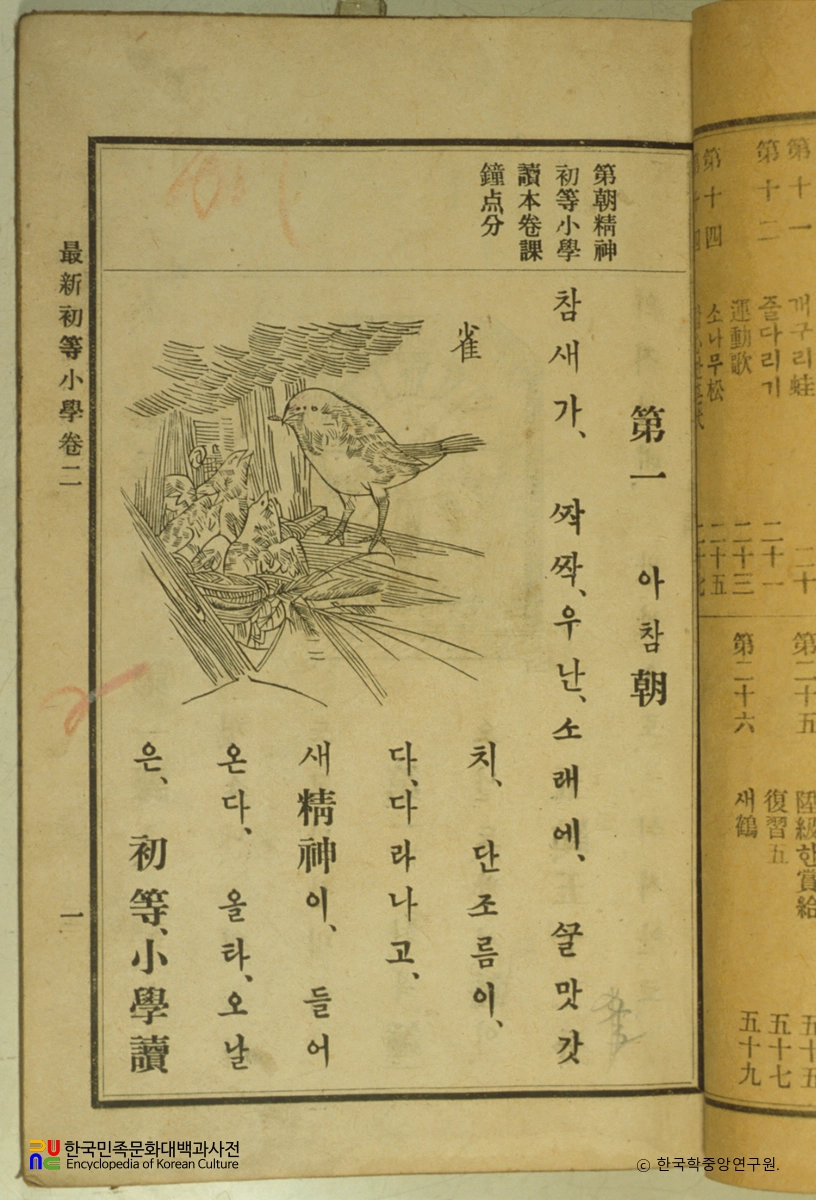 第十一 개구리蛙 二十
第十二 즐다리기 二十一
運動歌 二十三
第十四 소나무松 二十五
第二十五 陸級한賞給 五十五
復習五 五十七
第二十六 새鶴 五十九
第朝精神
初等小學
讀本卷課
鐘点分
第一 아참 朝
참새가、 ᄶᅡᆨᄶᅡᆨ、우난、소래에、 ᄭᅮᆯ맛갓
치、 단조름이、
다、다라나고、
새精神이、 들어
온다、 올타、오날
은、 初等、小學讀
雀
最新初等小學卷二
一
한국민족문화대백과사전
Encyclopedia of Korean Culture
© 한국학중앙연구원.